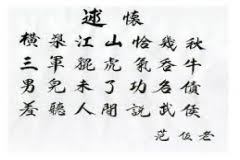 述懷
橫槊江山恰幾秋
三軍貔虎氣吞牛
男兒未了功名債
羞聽人間說武侯
范伍老